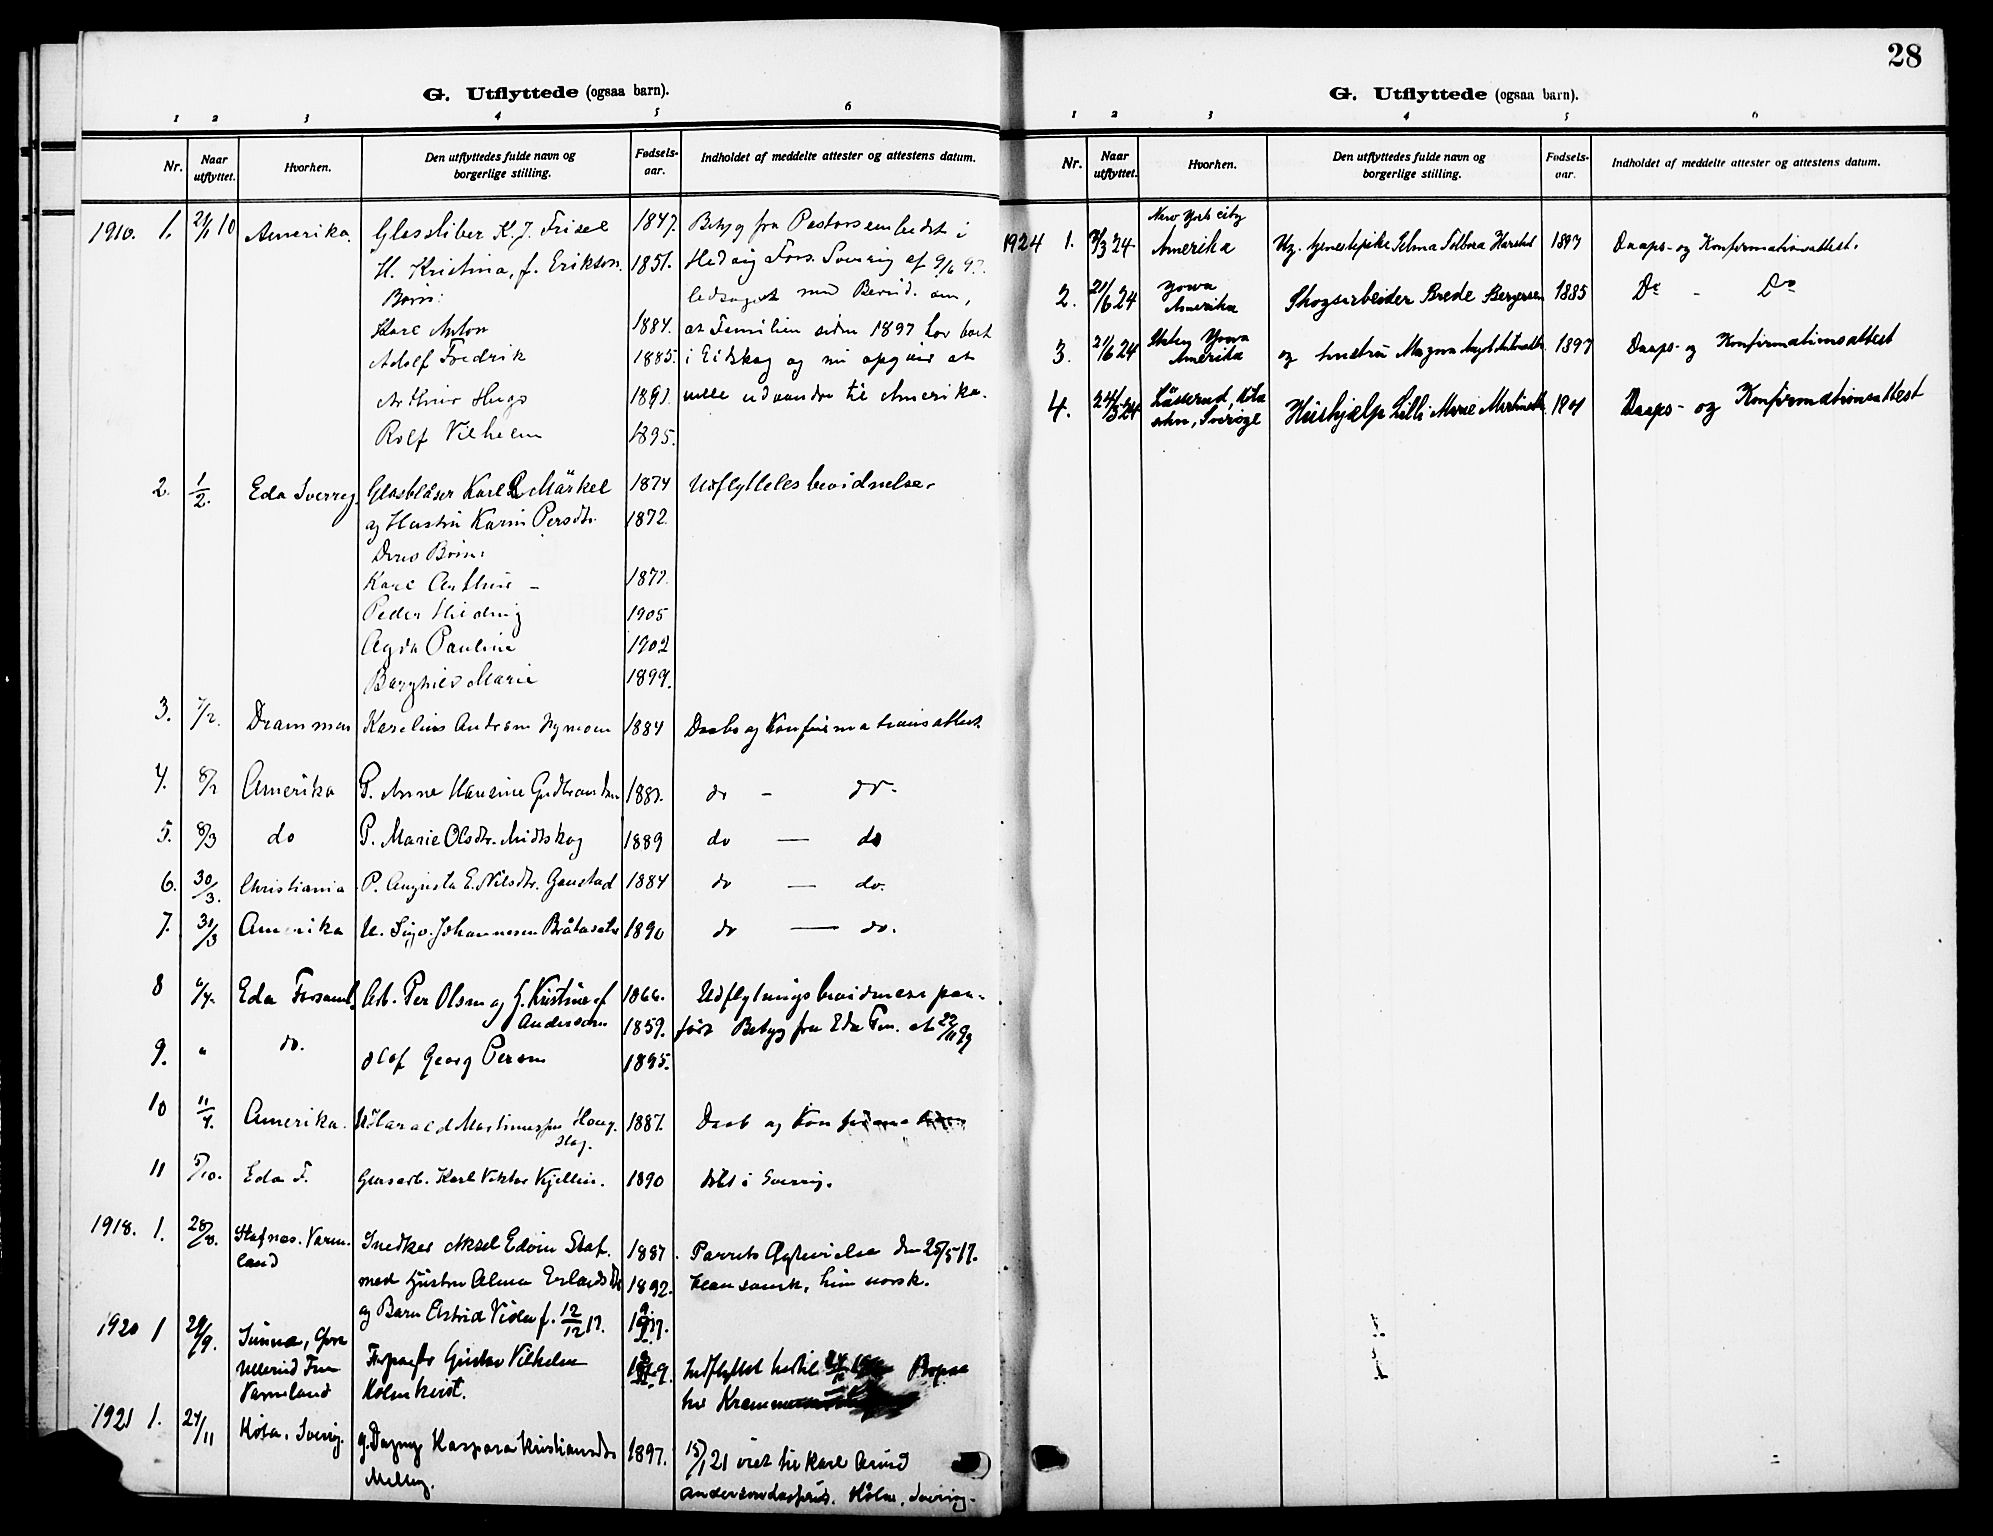 G. Utflyttede (ogsaa barn).
1 2 3 4 5 6
Nr. Naar utflyttet. Hvorhen. Den utflyttedes fulde navn og borgerlige stilling. Fødsels-aar. Indholdet af meddelte attester og attestens datum.
1910. 1. 21/1 10 Amerika. Glassliber K. J. Frisel 1847. Betyg fra Pastorsembedet i
H. Kristina, f. Erikson. 1851. Hedvig Fors. Sverig af 9/6 97.
Børn: ledsaget med Bevid. om,
Karl Anton 1884. at Familien siden 1897 har boet
Adolf Fredrik 1885. i Eidskog og nu opgiver at
Arthur Hugo 1891. ville udvandre til Amerika.
Rolf Vilhelm 1895.
2. 1/2. Eda Sverrig. Glasblåser Karl Märkel 1874 Udflyttelesbevidnelse.
og Hustru Karin Persdtr. 1872.
Deres Børn:
Karl Arthur - 1877.
Peder Hedvig 1905
Agda Paulina 1902
Borghild Marie 1899.
3. 7/2. Drammen Karelius Andersen 1884 Daabs og Konfirmationsattest.
4. 8/2 Amerika P. Anne Hansine Gudbrandsen 1887. do - do.
5. 8/3 do P. Marie Olsdtr. Midtskog 1889 do — do
6. 30/3. Christiania P. Augusta E. Nilsdtr. Gaustad 1884 do — do.
7. 30/3 Amerika U. Johannesen Bråtasæter 1890 do — do.
8 6/4. Eda Forsaml. Arb. Per Olsen og H. Kristine f. 1866. Udflytningsbevidnese paa-
Anderson 1859. ført Betyg fra Eda Fors. at 22/11 99
9. " do. Olof Georg Person 1895.
10 11/4. Amerika. U. Harald Martinussen Haug- 1887. Daab og Konfirmation
11 5/10. Eda F. Glasarb. Karl Viktor Kjellin. 1890 født i Sverrig.
1918. 1. 28/8. Stafnes. Varm- Snedker Aksel Edvin Staf. 1887. Parrets Ægtevielse den 25/5 17.
land med Hustru Alma Erlandsdtr 1892. Han svensk, hun norsk.
og Barn Astrid Viola f. 12/12 17. 1917.
1920 1 29/9. Sunne, Gustav Vilhelm Indflyttet hertil
Ullerud Holmkvist.
Varmland
1921 1. 24/11 Køla. Sverig. g. Dagny Kaspara Kristiansdtr 1897. 15/1 21 viet til Karl Arvid
Melby. Køla, Sverig.
28
G. Utflyttede (ogsaa barn).
1 2 3 4 5 6
Nr. Naar utflyttet. Hvorhen. Den utflyttedes fulde navn og borgerlige stilling. Fødsels-aar. Indholdet af meddelte attester og attestens datum.
New York City
1924 1. 3/3 24 Amerika Ug. tjenestepike Selma Solbora Harstad 1897 Daaps- og Konfirmationsattest.
2. 21/6 24 Yowa Amerika Skogsarbeider Brede Bergersen 1885 Do - Do
3. 21/6 24 Staten Yowa Amerika og hustru Magna 1897 Daaps- og Konfirmationsattest
4. 24/3 24 Lässerud, Köla sokn, Sverige Hushjælp Lilli Marie Martinsdtr. 1901 Daaps- og Konfirmationsattest